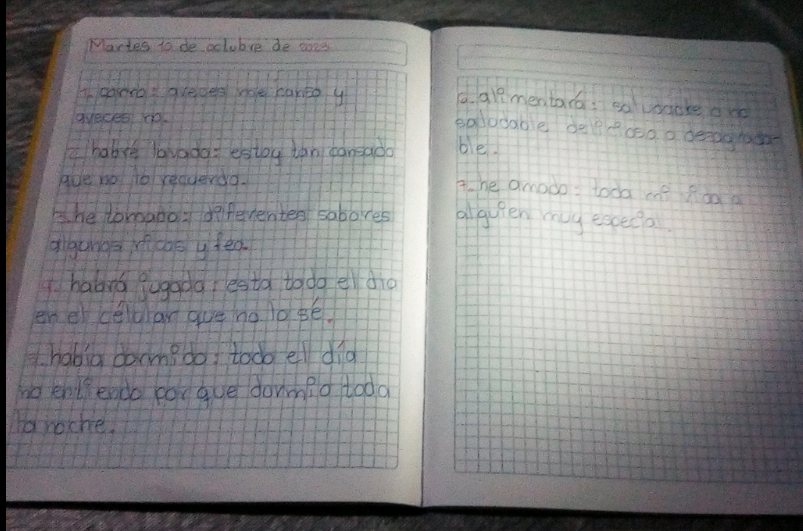 Martes 10 de octubre de 2023
1. corro: aveces me canso y
aveces no.
2. habré lavado: estoy tan cansado
que no lo recuerdo.
3. he tomado: diferentes sabores
algunos ricos y feo.
4. habrá jugado: esta todo el dia
en el célular que no lo sé.
5. había dormido: todo el día
no entiendo por que dormio toda
la noche.
6. alimentará: saludable o no
saludable delicioso o desagrada-
ble.
7. he amado: toda mi vida a
alguien muy especial.